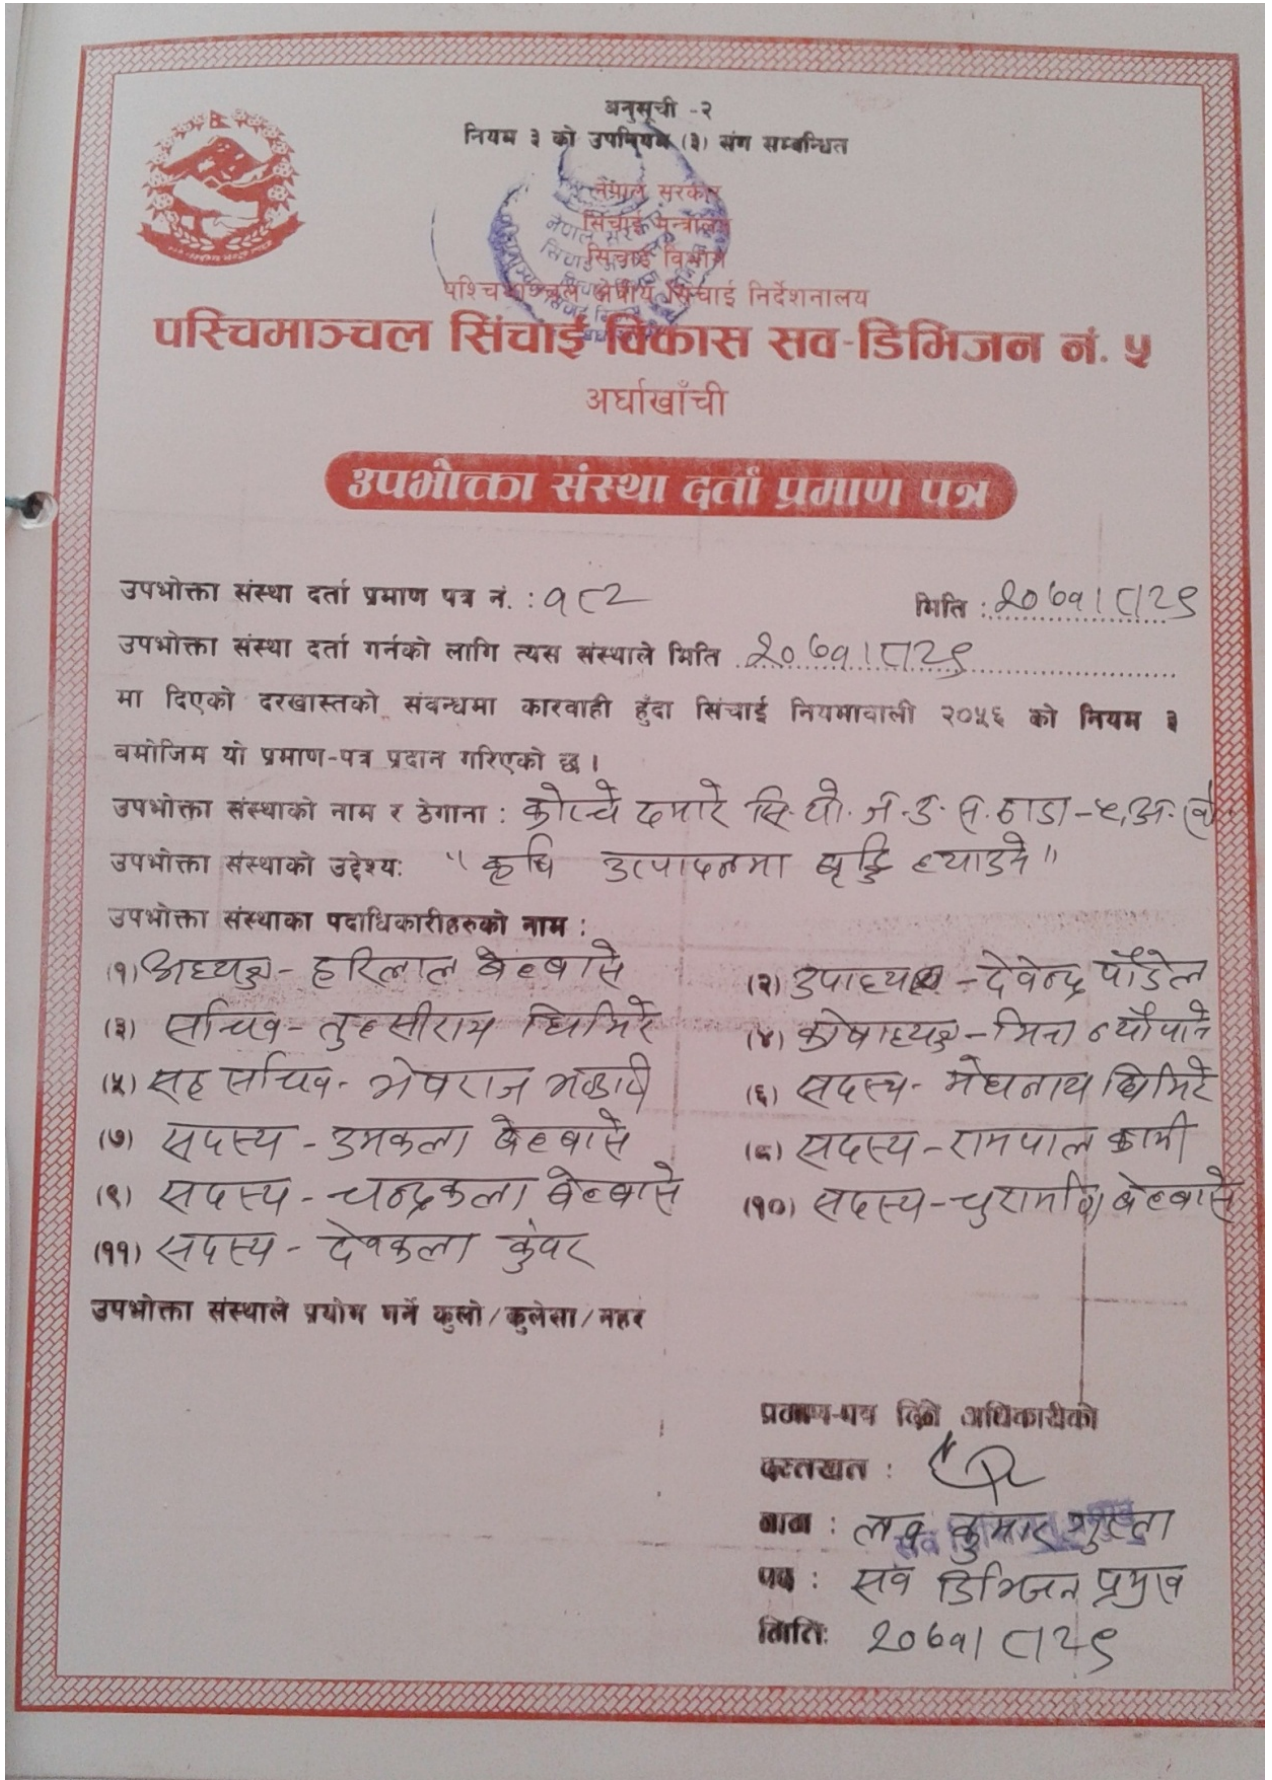 अनुसूची -२
नियम ३ को उपनियम (३) संग सम्बन्धित
नेपाल सरकार
सिंचाई मन्त्रालय
सिंचाई विभाग
पश्चिमाञ्चल क्षेत्रीय सिंचाई निर्देशनालय
पश्चिमाञ्चल सिंचाई विकास सव-डिभिजन नं. ५
अर्घाखाँची
उपभोक्ता संस्था दर्ता प्रमाण पत्र
उपभोक्ता संस्था दर्ता प्रमाण पत्र नं. : १८२ मिति : २०७१।८।२९
उपभोक्ता संस्था दर्ता गर्नको लागि त्यस संस्थाले मिति २०७१।८।२९
मा दिएको दरखास्तको संवन्धमा कारवाही हुँदा सिंचाई नियमावाली २०५६ को नियम ३
बमोजिम यो प्रमाण-पत्र प्रदान गरिएको छ।
उपभोक्ता संस्थाको नाम र ठेगाना : कोल्चे दमारे सि.यो.ज.उ.स. ठाडा-५, अ.खाँ
उपभोक्ता संस्थाको उद्देश्य: "कृषि उत्पादनमा बृद्धि ल्याउने"
उपभोक्ता संस्थाका पदाधिकारीहरुको नाम :
(१) अध्यक्ष - हरिलाल बेल्बासे (२) उपाध्यक्ष - देवेन्द्र पौडेल
(३) सचिव - तुल्सीराम घिमिरे (४) कोषाध्यक्ष - मिना न्यौपाने
(५) सह सचिव - भेषराज भण्डारी (६) सदस्य - मेघनाथ घिमिरे
(७) सदस्य - उमकला बेल्बासे (८) सदस्य - रामपाल कामी
(९) सदस्य - चन्द्रकला बेल्बासे (१०) सदस्य - चुरामणि बेल्बासे
(११) सदस्य - देवकला कुंवर
उपभोक्ता संस्थाले प्रयोग गर्ने कुलो/कुलेसा/नहर
प्रमाण-पत्र दिने अधिकारीको
दस्तखत :
नाम : लव कुमार गुप्ता
पद : सव डिभिजन प्रमुख
मिति: २०७१।८।२९